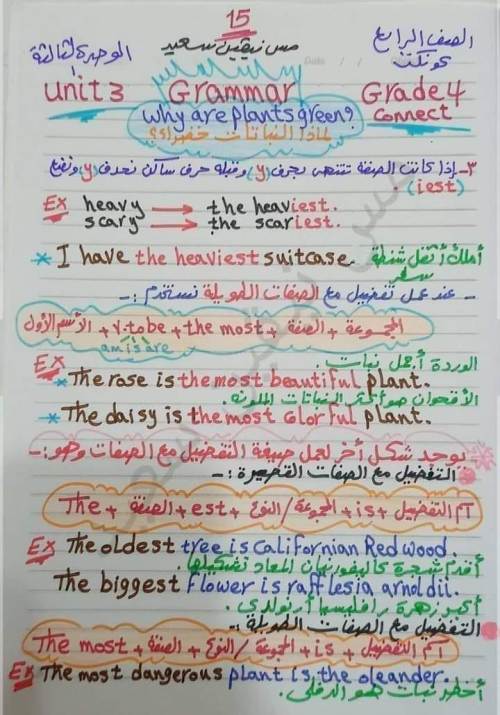 15
الصف الرابع
مس نيفين سعيد
الوحدة الثالثة
كونكت
Unit 3 Grammar Grade 4
Connect
Why are plants green?
لماذا النباتات خضراء؟
٣- إذا كانت الصفة تنتهى بحرف (y) وقبله حرف ساكن نحذف (y) ونضع
(iest).
Ex heavy → the heaviest.
scary → the scariest.
* I have the heaviest suitcase. أملك أثقل شنطة
سفر
- عند عمل تفضيل مع الصفات الطويلة نستخدم :-
الأسم الأول + v.to be + the most + الصفة + المجموعة
am is are
الوردة أجمل نبات.
Ex
* The rose is the most beautiful plant.
الأقحوان هو أكثر النباتات الملونه.
* The daisy is the most colorful plant.
يوجد شكل أخر لعمل صيغة التفضيل مع الصفات وهو:-
التفضيل مع الصفات القصيرة :-
The + الصفة + est + المجموعة/النوع + is + أسم التفضيل
Ex The oldest tree is Californian Redwood.
أقدم شجرة
The biggest flower is rafflesia arnoldii.
أكبر زهرة رافليسيا أرنولدى.
التفضيل مع الصفات الطويلة :-
The most + الصفة + المجموعة/النوع + is + أسم التفضيل
Ex The most dangerous plant is the oleander.
أخطر نبات هو الدفلى.